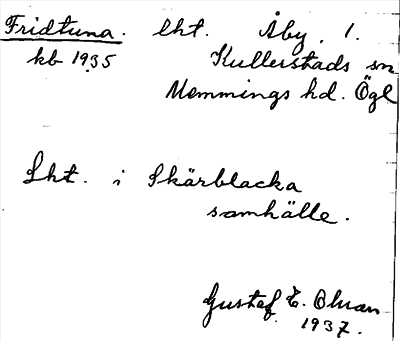 Fridtuna. lht. Åby. 1.
kb 1935 Kullerstads sn
Memmings hd. Ögl
Lht. i Skärblacka
samhälle.
Gustaf E. Ohran
1937.